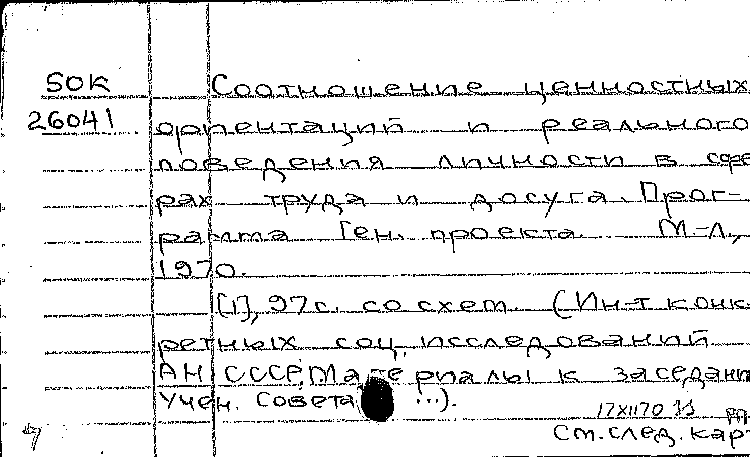 50К Соотношение ценностных
26041 ориентаций и реального
поведения личности в сфе
рах труда и досуга. Прог-
рамма Ген. проекта. М.-Л.,
1970.
[1], 97с. со схем. (Ин-т конк
ретных соц. исследований
АН СССР. Материалы к заседани
Учен. Совета ...).
17XII70
См. след. кар